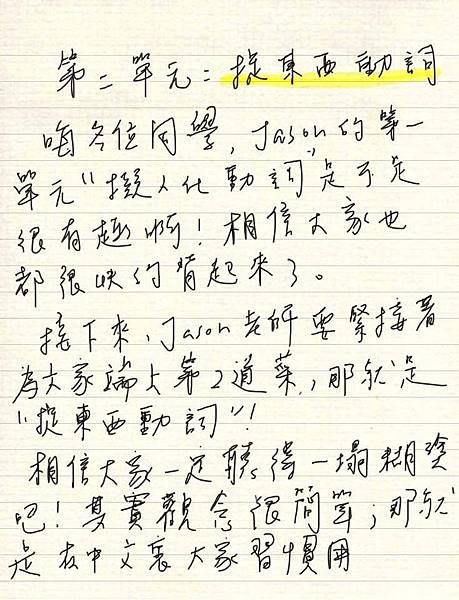 第二單元：提東西動詞
嗨各位同學，Jason的第一
單元"擬人化動詞"是不是
很有趣啊！相信大家也
都很快的背起來了。
接下來，Jason老師要緊接著
為大家端上第2道菜，那就是
"提東西動詞"！
相信大家一定聽得一塌糊塗
吧！其實觀念很簡單；那就
是在中文裏大家習慣用